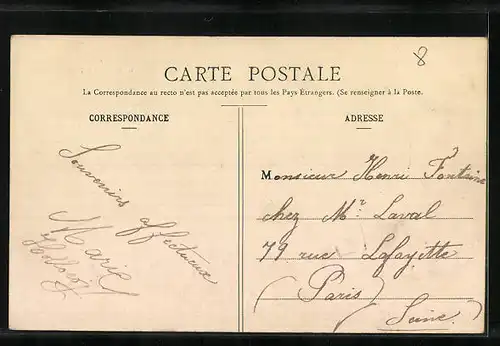 8
CARTE POSTALE
La Correspondance au recto n'est pas acceptée par tous les Pays Étrangers. (Se renseigner à la Poste.
CORRESPONDANCE
ADRESSE
Souvenirs affectueux
Marie
Monsieur Henri Fontaine
chez Mr. Laval
79 rue Lafayette
(Paris)
Seine